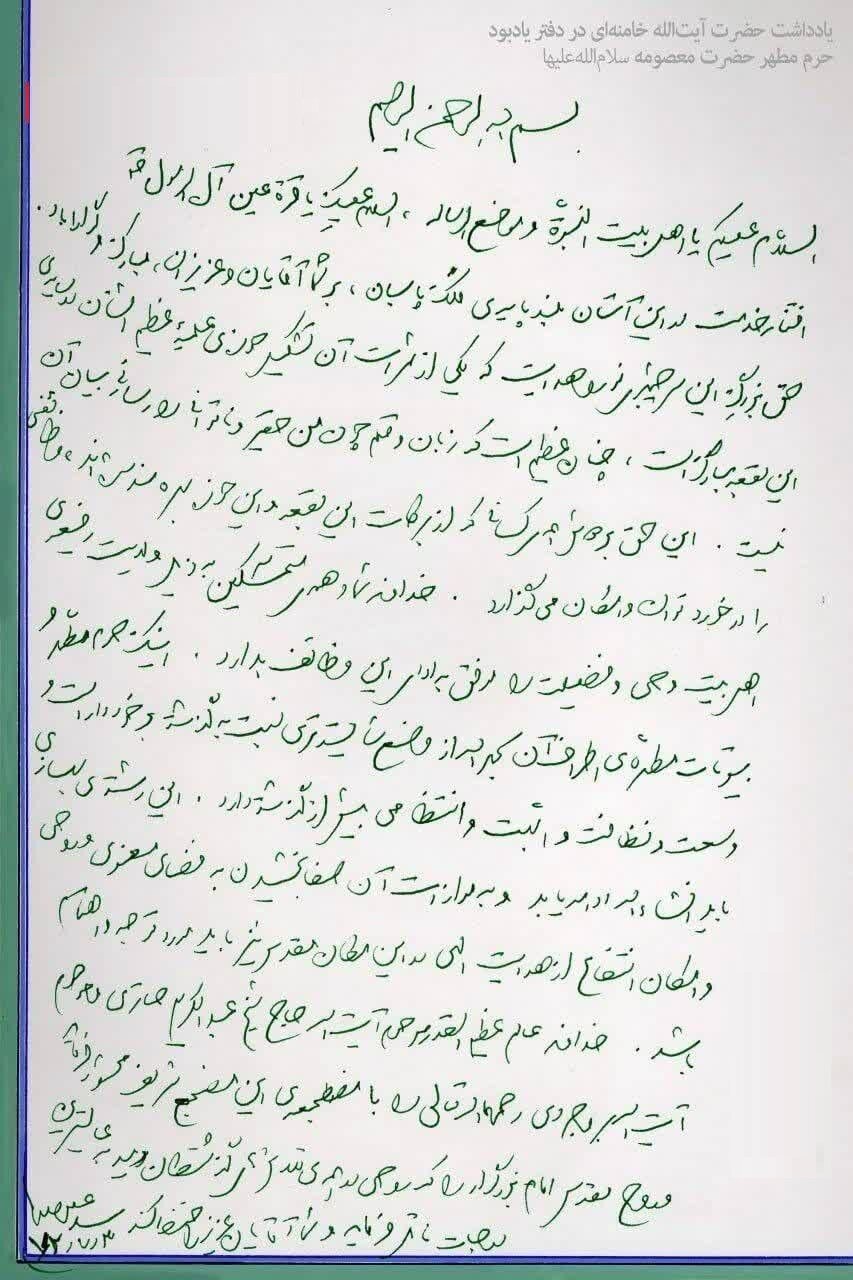 یادداشت حضرت آیت‌الله خامنه‌ای در دفتر یادبود
حرم مطهر حضرت معصومه سلام‌الله‌علیها
بسم الله الرحمن الرحیم
السلام علیکم یا اهل بیت النبوة و موضع الرسالة ، السلام علیکِ یا قرة عین آل الرسول
افتخار خدمت در این آستان بلندپایه‌ی ملک پاسبان ، بر شما آقایان و عزیزان ، مبارک و گوارا باد .
حق بزرگ این سرچشمه‌ی نور و هدایت که یکی از ثمرات آن تشکیل حوزه‌ی علمیه‌ی عظیم الشأن در
این بقعه مبارکه است ، چنان عظیم است که زبان و قلم چون من حقیر و ناتوانی را رسائی بیان آن
نیست . این حق بر دوش همه‌ی کسانی که از برکات این بقعه و این حوزه بهره‌مند می‌شوند ، وظائفی
را در خورد توان و امکان می‌گذارد . خداوند شما و همه‌ی متمسکین به ذیل ولایت
اهل بیت وحی و فضیلت را موفق به ادای این وظائف بدارد . اینک حرم مطهر و
بیوتات مطهره‌ی اطراف آن بحمدالله از وضع شایسته‌تری نسبت به گذشته برخوردار است و
وسعت و نظافت و ابهت و انتظامی بیش از گذشته دارد . این رشته‌ی بهسازی
باید انشاءالله ادامه یابد و به موازات آن صفا بخشیدن به فضای معنوی و روحی
و امکان انتفاع از هدایت الهی در این مکان مقدس نیز باید مورد توجه و اهتمام
باشد . خداوند عالم عظیم القدر مرحوم آیت الله حاج شیخ عبدالکریم حائری و مرحوم
آیت الله بروجردی رحمهما الله تعالی را با مضطجعه‌ی این مضجع شریف محشور فرماید
و روح مقدس امام بزرگوار را که روحی در همه‌ی این
درجات نائل فرماید و شما آقایان عزیز را حفظ کند
سید علی خامنه‌ای